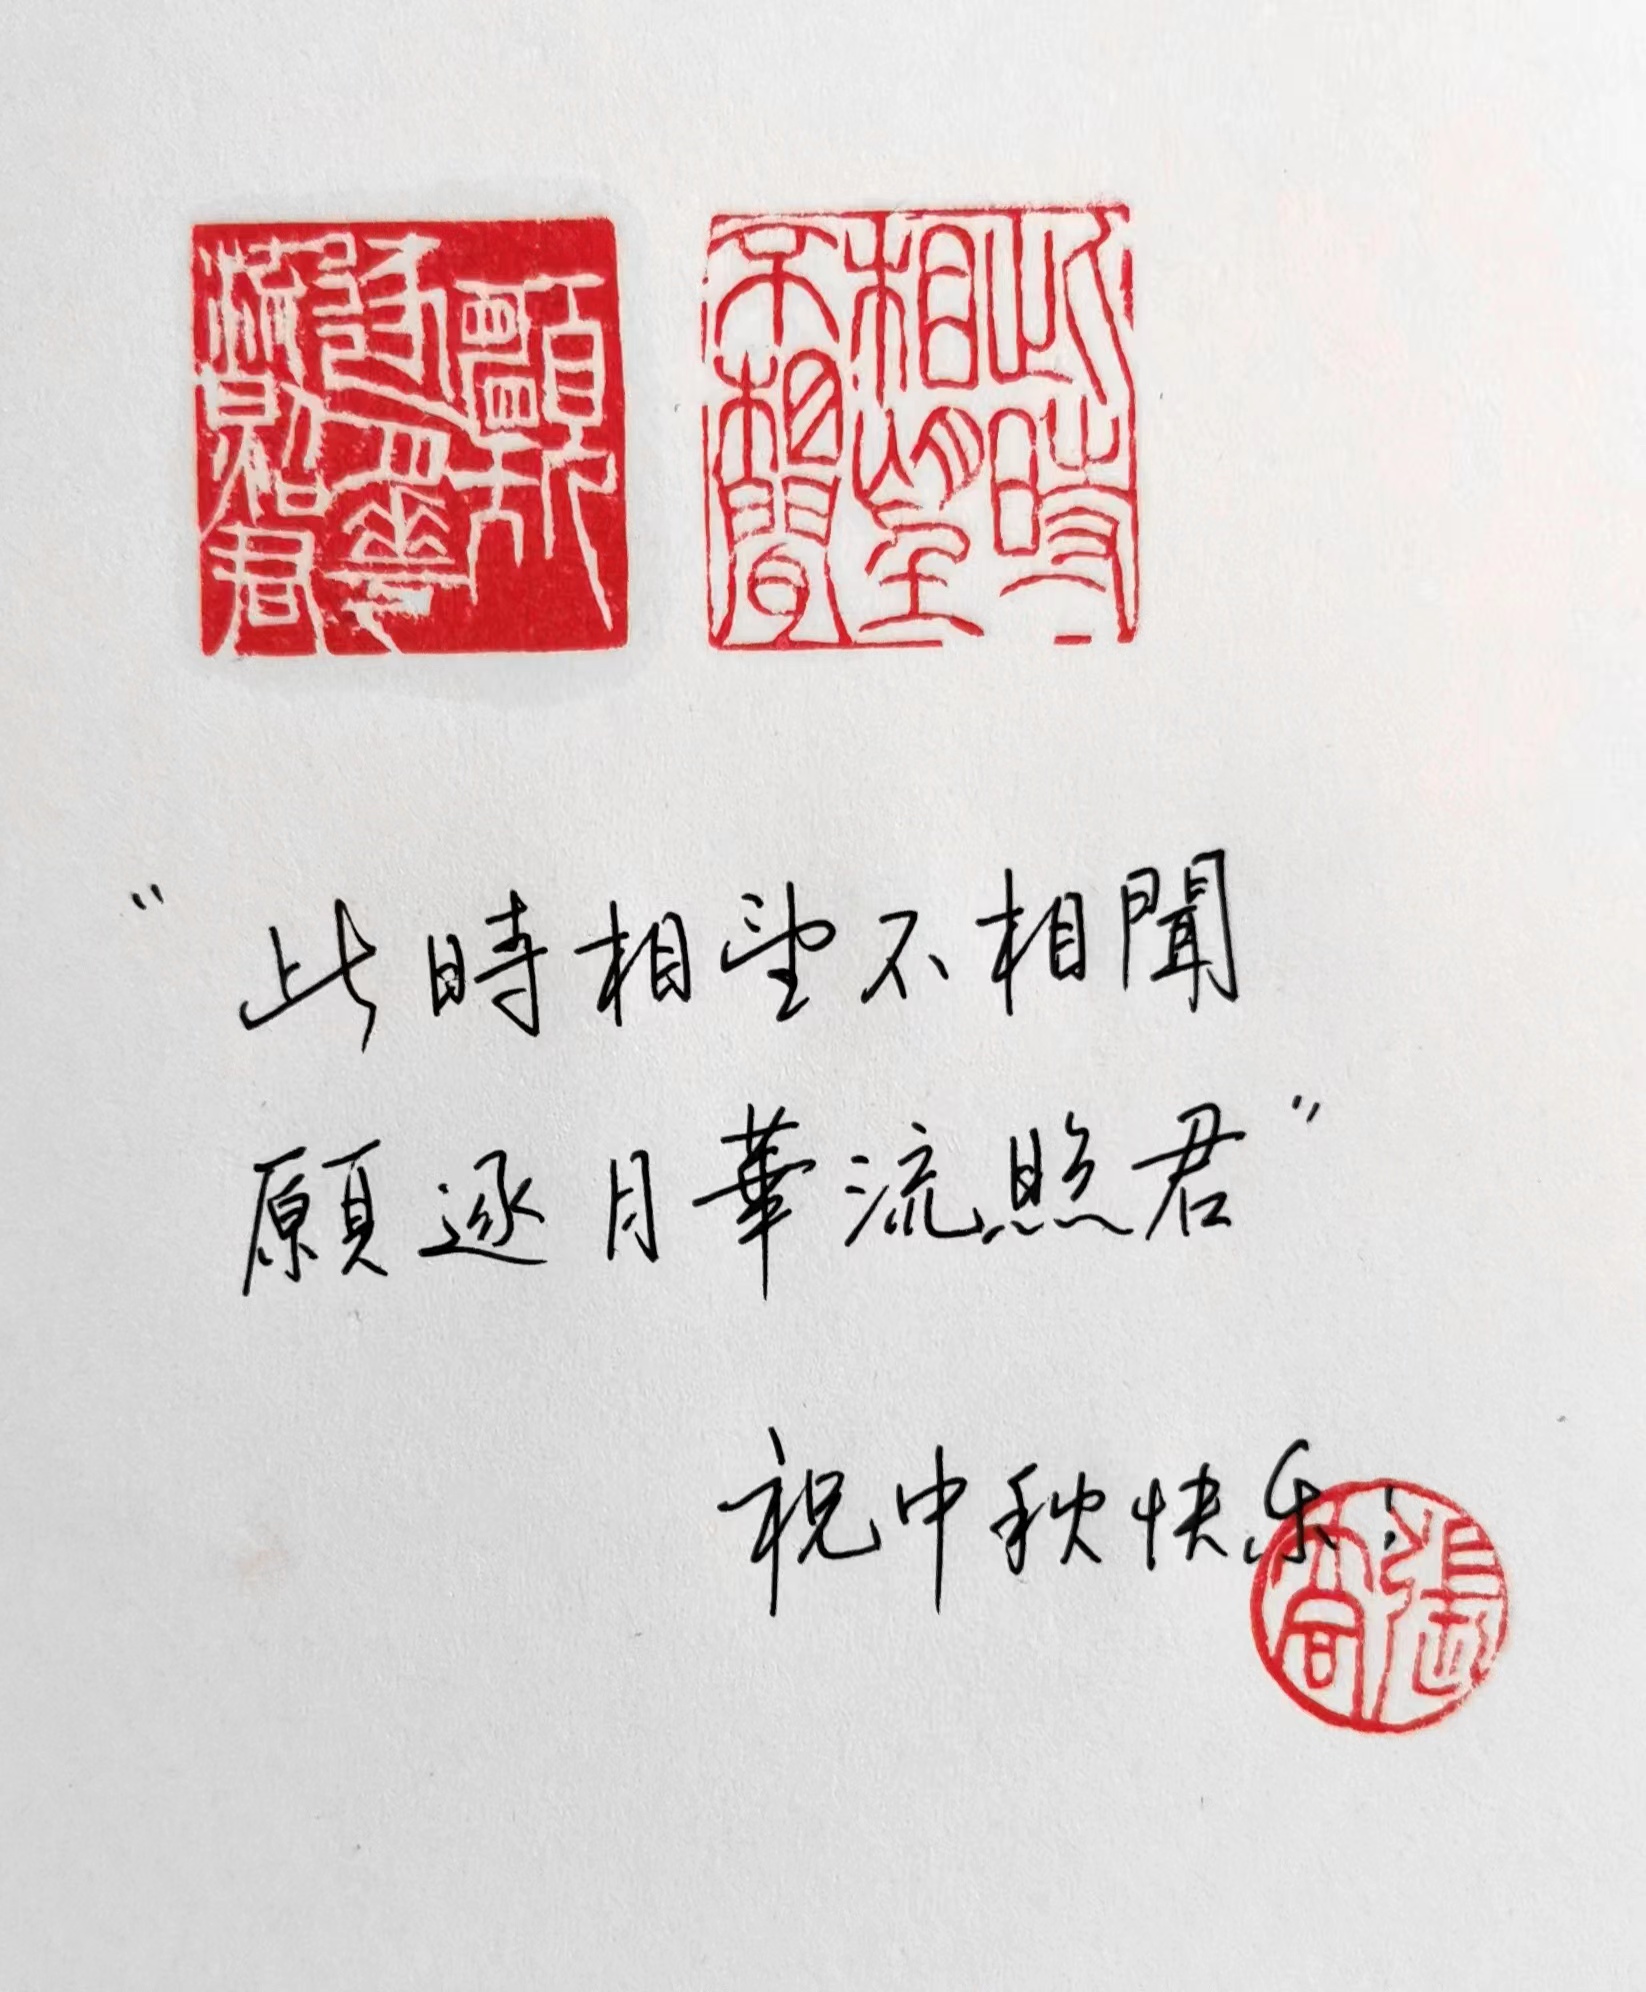 此時
相望
不相聞
願
逐月華
流照君
"此時相望不相聞
願逐月華流照君"
祝中秋快乐！